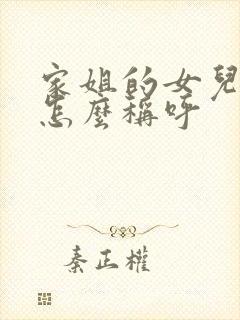 家姐的女兒
怎麼稱呼
秦正權